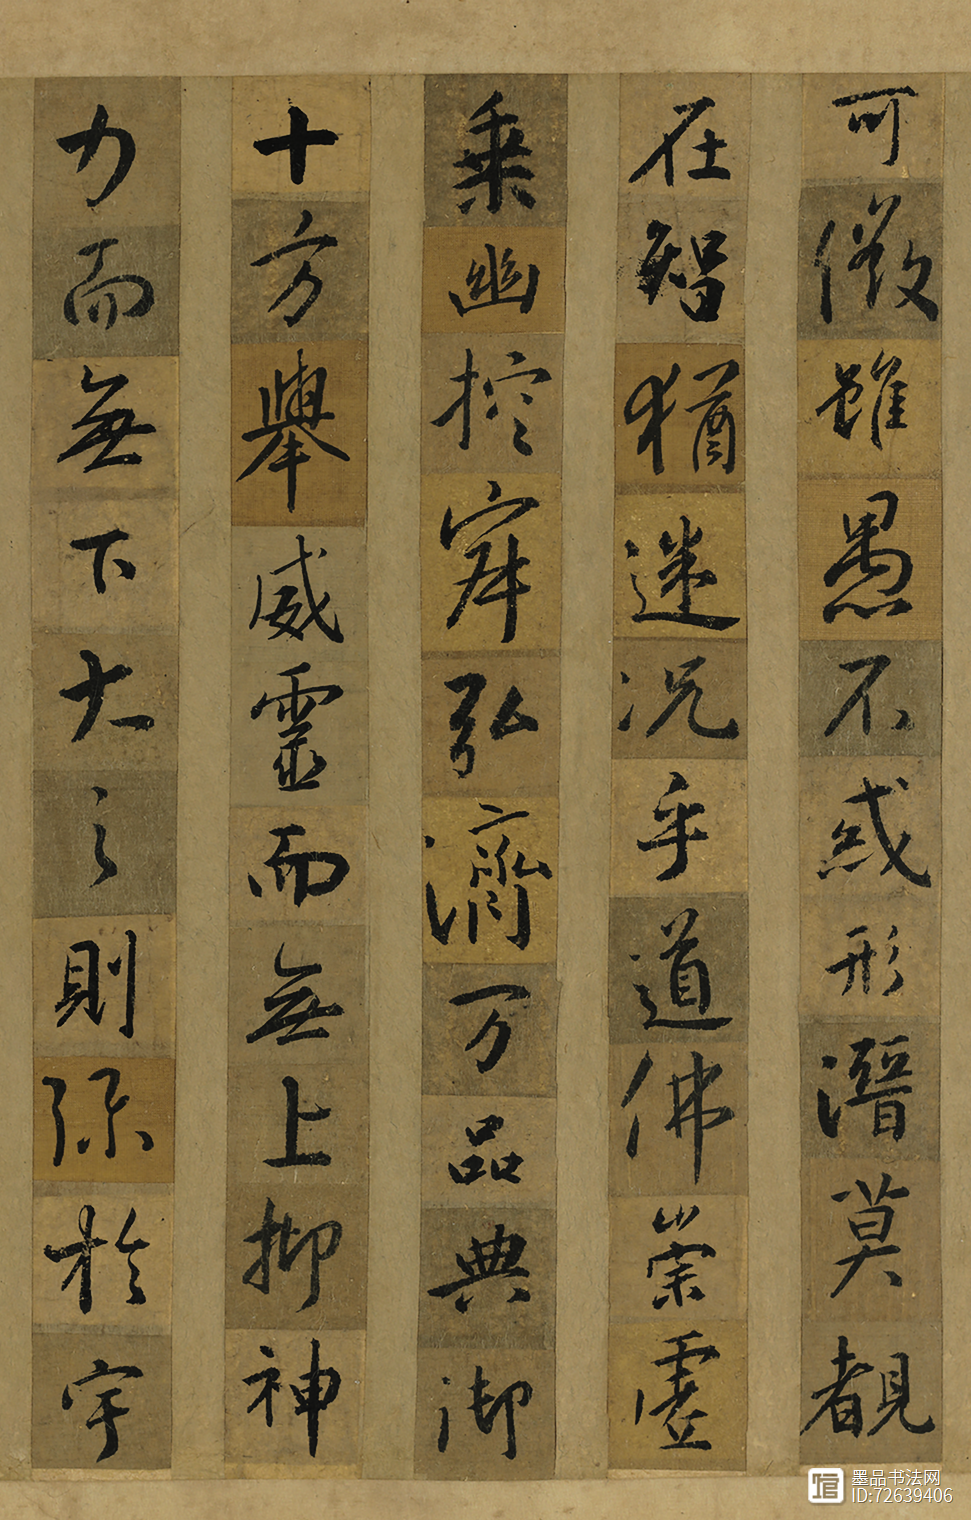 可徵雖愚不惑形潛莫覩
在智猶迷況乎道佛崇虛
乘幽控寂弘濟万品典御
十方舉威靈而無上抑神
力而無下大之則弥於宇
墨品书法网
ID:72639406